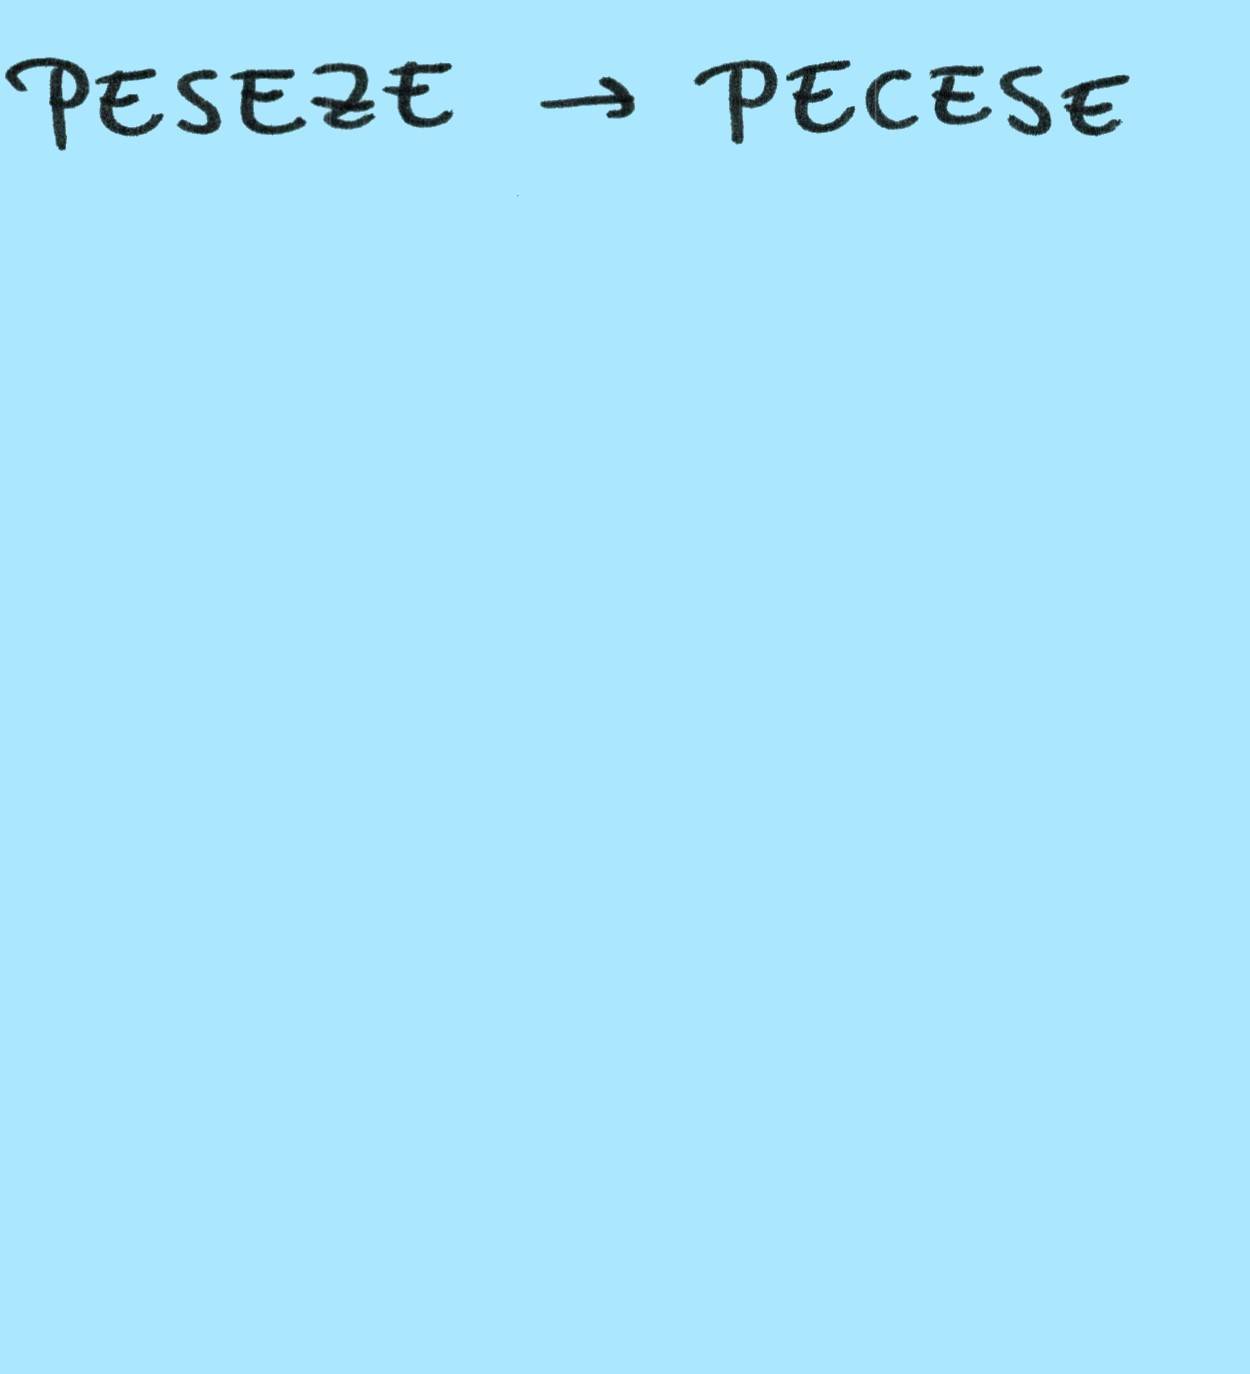 PESEZE → PECESE